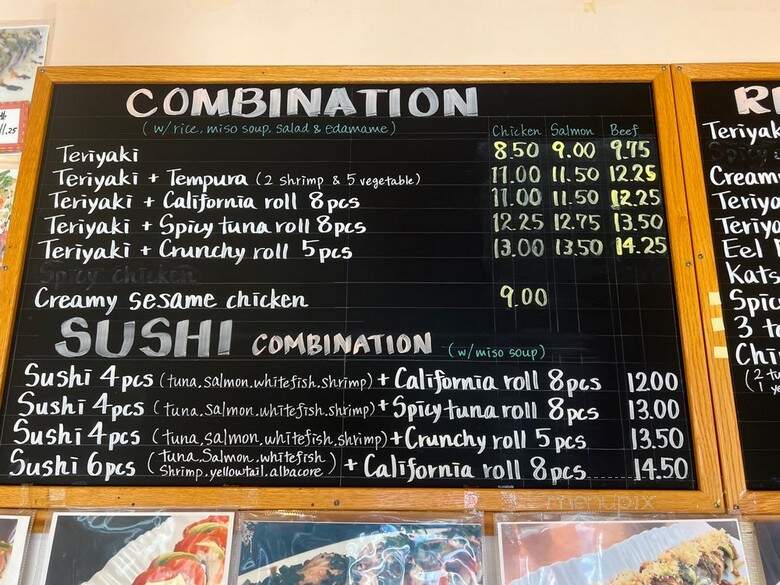 COMBINATION
(w/rice, miso soup, salad & edamame)
Chicken Salmon Beef
Teriyaki 8.50 9.00 9.75
Teriyaki + Tempura (2 shrimp & 5 vegetable) 11.00 11.50 12.25
Teriyaki + California roll 8pcs 11.00 11.50 12.25
Teriyaki + Spicy tuna roll 8pcs 12.25 12.75 13.50
Teriyaki + Crunchy roll 5pcs 13.00 13.50 14.25
Spicy chicken
Creamy sesame chicken 9.00
SUSHI COMBINATION (w/miso soup)
Sushi 4pcs (tuna, salmon, whitefish, shrimp) + California roll 8pcs 12.00
Sushi 4pcs (tuna, salmon, whitefish, shrimp) + Spicy tuna roll 8pcs 13.00
Sushi 4pcs (tuna, salmon, whitefish, shrimp) + Crunchy roll 5pcs 13.50
Sushi 6pcs (tuna, salmon, whitefish
shrimp, yellowtail, albacore) + California roll 8pcs 14.50
11.25
R
Teriyak
Spicy
Cream
Teriya
Teriya
Eel
Kats
Spic
3 t
Chi
(2 tu
1 ye
menupix